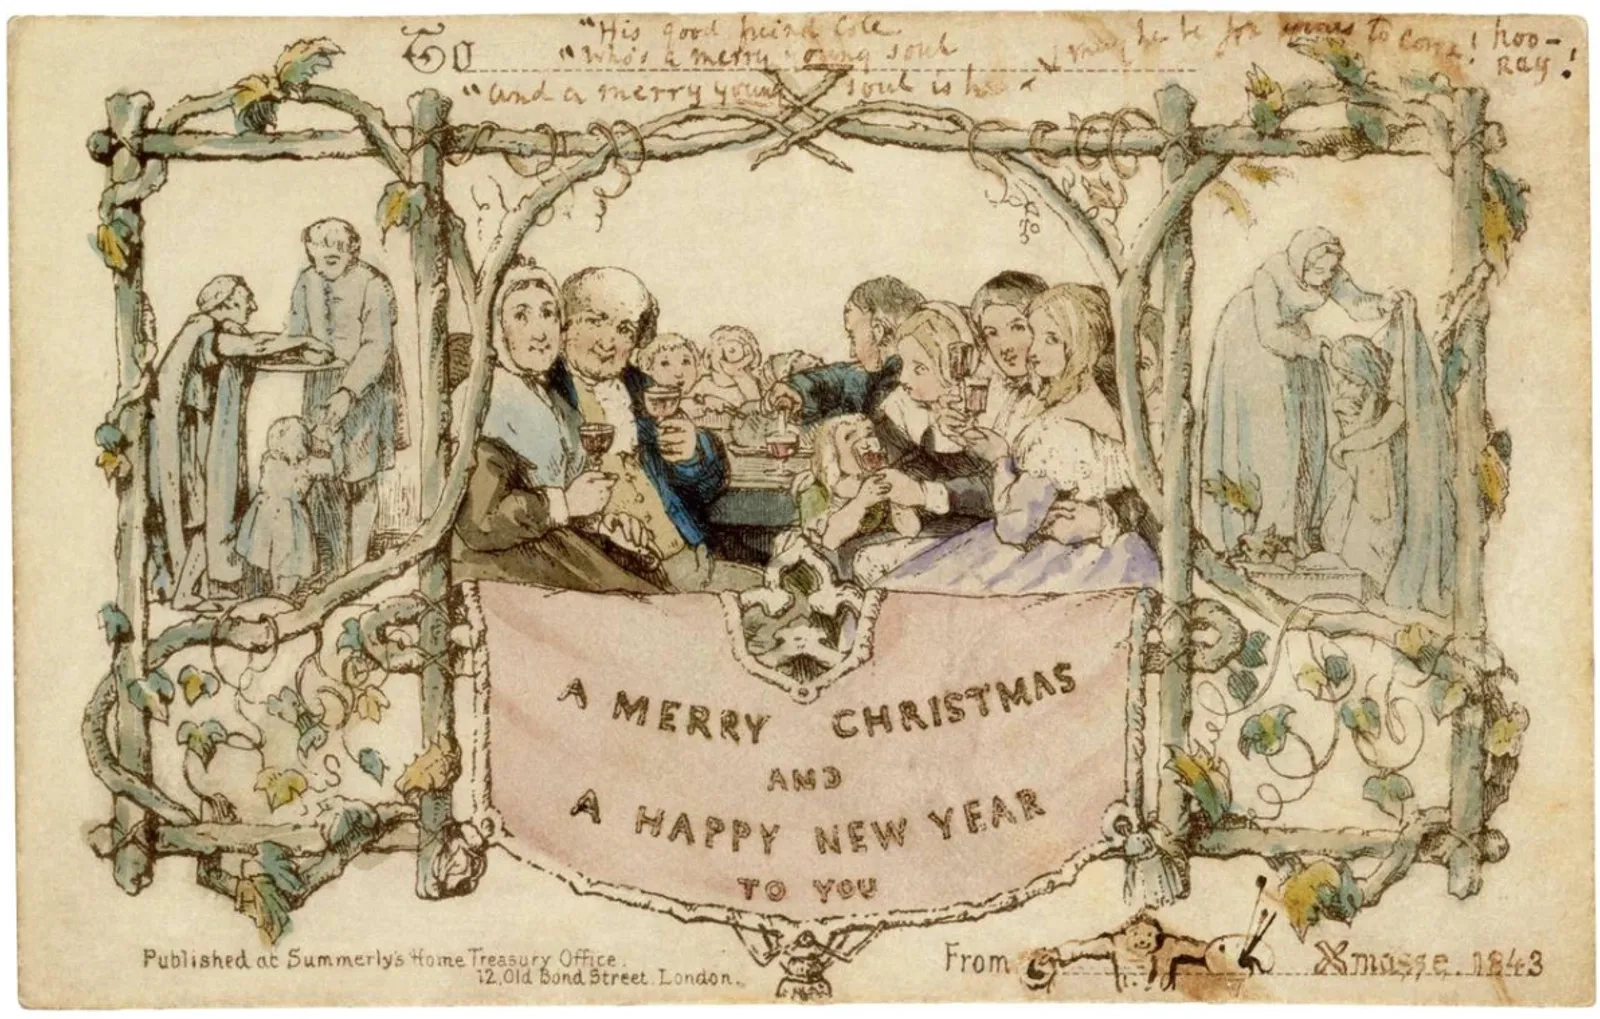 To
"His good friend Cole
"Who's a merry young soul
"And a merry young soul is he
& may he be for years to come! hoo-
ray!
A MERRY CHRISTMAS
AND
A HAPPY NEW YEAR
TO YOU
Published at Summerly's Home Treasury Office.
12, Old Bond Street. London.
From
Xmasse. 1843